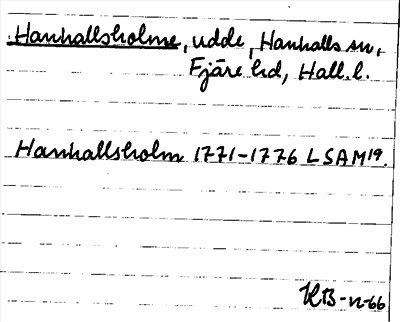 Hanhallsholme, udde, Hanhalls sn,
Fjäre hd, Hall. l.
Hanhallsholm 1771-1776 LSAM19.
KB-n-66